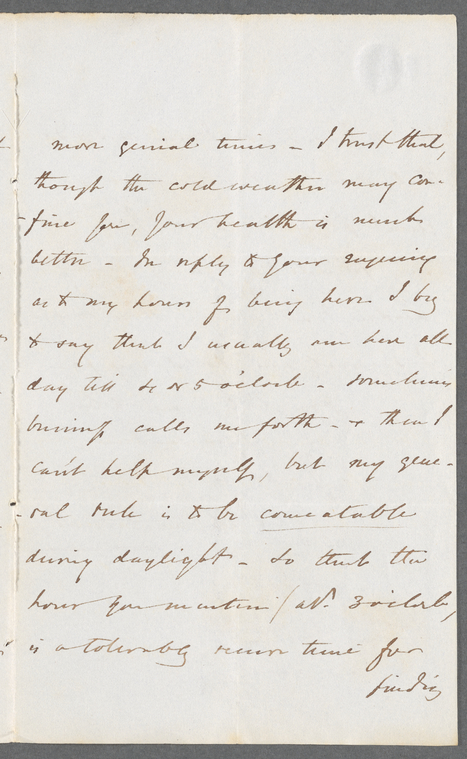 more genial times - I trust that,
though the cold weather may con-
fine you, your health is much
better - In reply to your enquiry
as to my hours of being here I beg
to say that I usually am here all
day till 4 or 5 o'clock - sometimes
business calls me forth - & then I
can't help myself, but my gene-
-ral rule is to be comeatable
during daylight - So that the
hour you mention (abt. 3 o'clock,
is a tolerably secure time for
finding